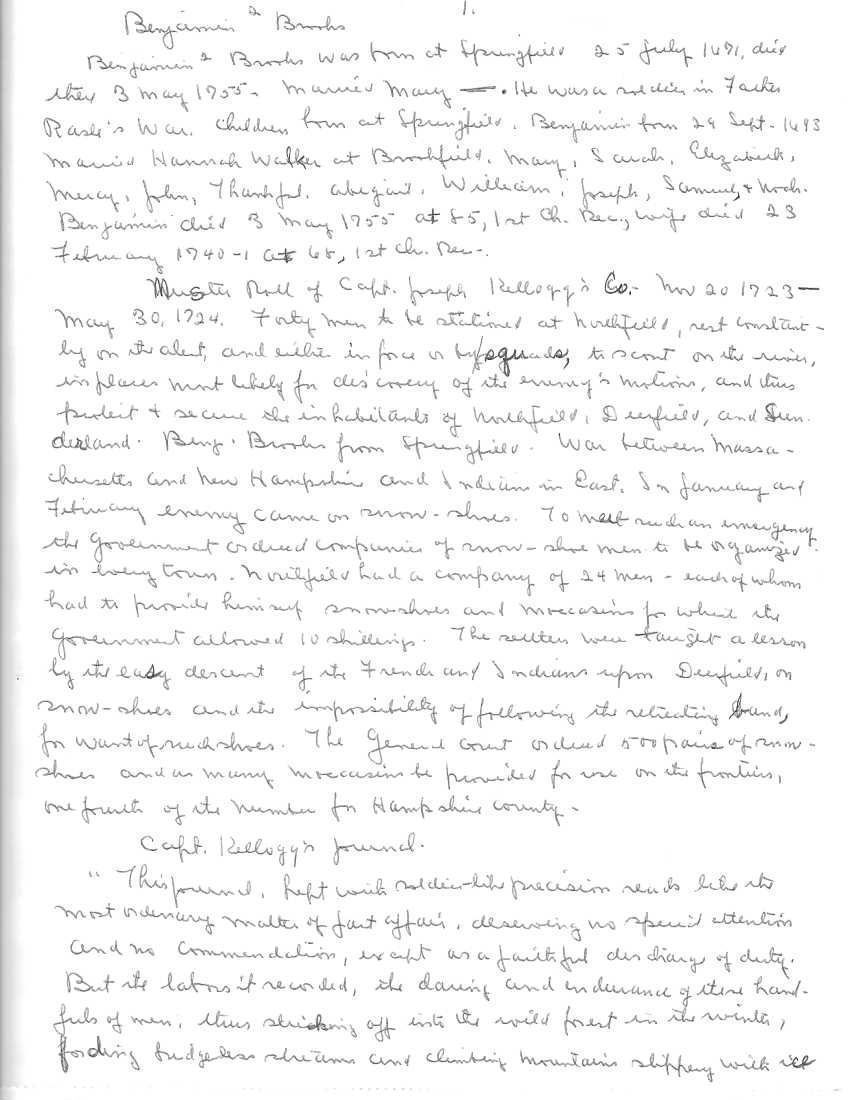 1.
Benjamin 2 Brooks
Benjamin 2 Brooks was born at Springfield 25 July 1671, died
there 3 May 1755. Married Mary —. He was a soldier in Father
Rasle's War. Children born at Springfield. Benjamin born 29 Sept. 1693
married Hannah Walker at Brookfield, Mary, Sarah, Elizabeth,
Mercy, John, Thankful, Abigail, William, Joseph, Samuel, & Noah.
Benjamin died 3 May 1755 at 85, 1st Ch. Rec., wife died 23
February 1740-1 at 68, 1st Ch. Rec-.
Muster Roll of Capt. Joseph Kellogg's Co.- Nov 20 1723—
May 30, 1724. Forty men to be stationed at Northfield, rest constant-
ly on the alert, and either in force or by squads, to scout on the river,
in places most likely for discovery of the enemy's motions, and thus
protect & secure the inhabitants of Northfield, Deerfield, and Sun-
derland. Benj. Brooks from Springfield. War between Massa-
chusetts and New Hampshire and Indians in East. In January and
February enemy came on snow-shoes. To meet such an emergency
the Government ordered companies of snow-shoe men to be organized
in every town. Northfield had a company of 24 men - each of whom
had to provide himself snowshoes and moccasins for which the
Government allowed 10 shillings. The settlers were taught a lesson
by the easy descent of the French and Indians upon Deerfield, on
snow-shoes and the impossibility of following the retreating band,
for want of such shoes. The General Court ordered 500 pairs of snow-
shoes and as many moccasins be provided for use on the frontiers,
one fourth of the number for Hampshire County-
Capt. Kellogg's Journal.
"This journal, kept with soldier-like precision reads like the
most ordinary matter of fact affair, deserving no special attention
and no commendation, except as a faithful discharge of duty.
But the labors it recorded, the daring and endurance of these hand-
fuls of men, thus striking off into the wild forest in the winter,
fording bridgeless streams and climbing mountains slippery with ice